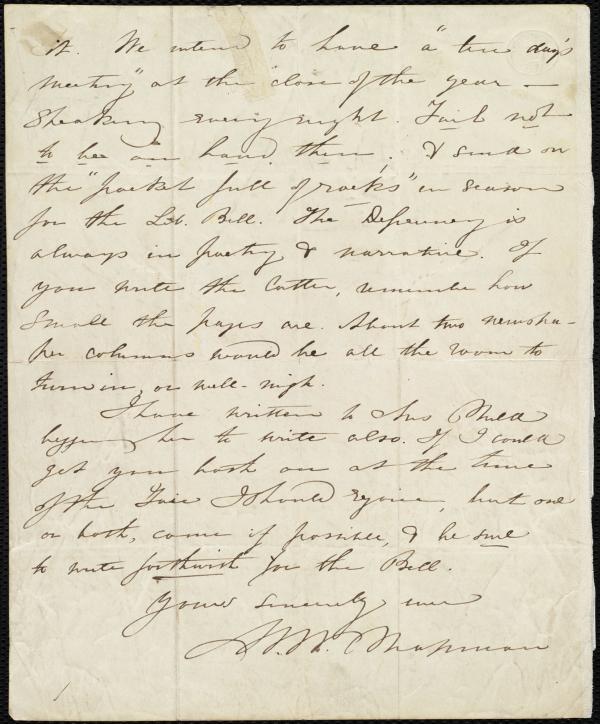 it. We intend to have a "ten days
meeting" at the close of the year —
Speaking every night. Fail not
to be on hand then, & send on
the "pocket full of rocks" in season
for the Lib. Bell. The Deficiency is
always in poetry & narrative. If
you write the latter, remember how
small the pages are. About two newspa-
per columns would be all the room to
turn in, or well-nigh.
I have written to Mrs Child
begging her to write also. If I could
get you both on at the time
of the Fair I should rejoice, but one
or both, come if possible, & be sure
to write forthwith for the Bell.
Yours sincerely ever
M. W. Chapman